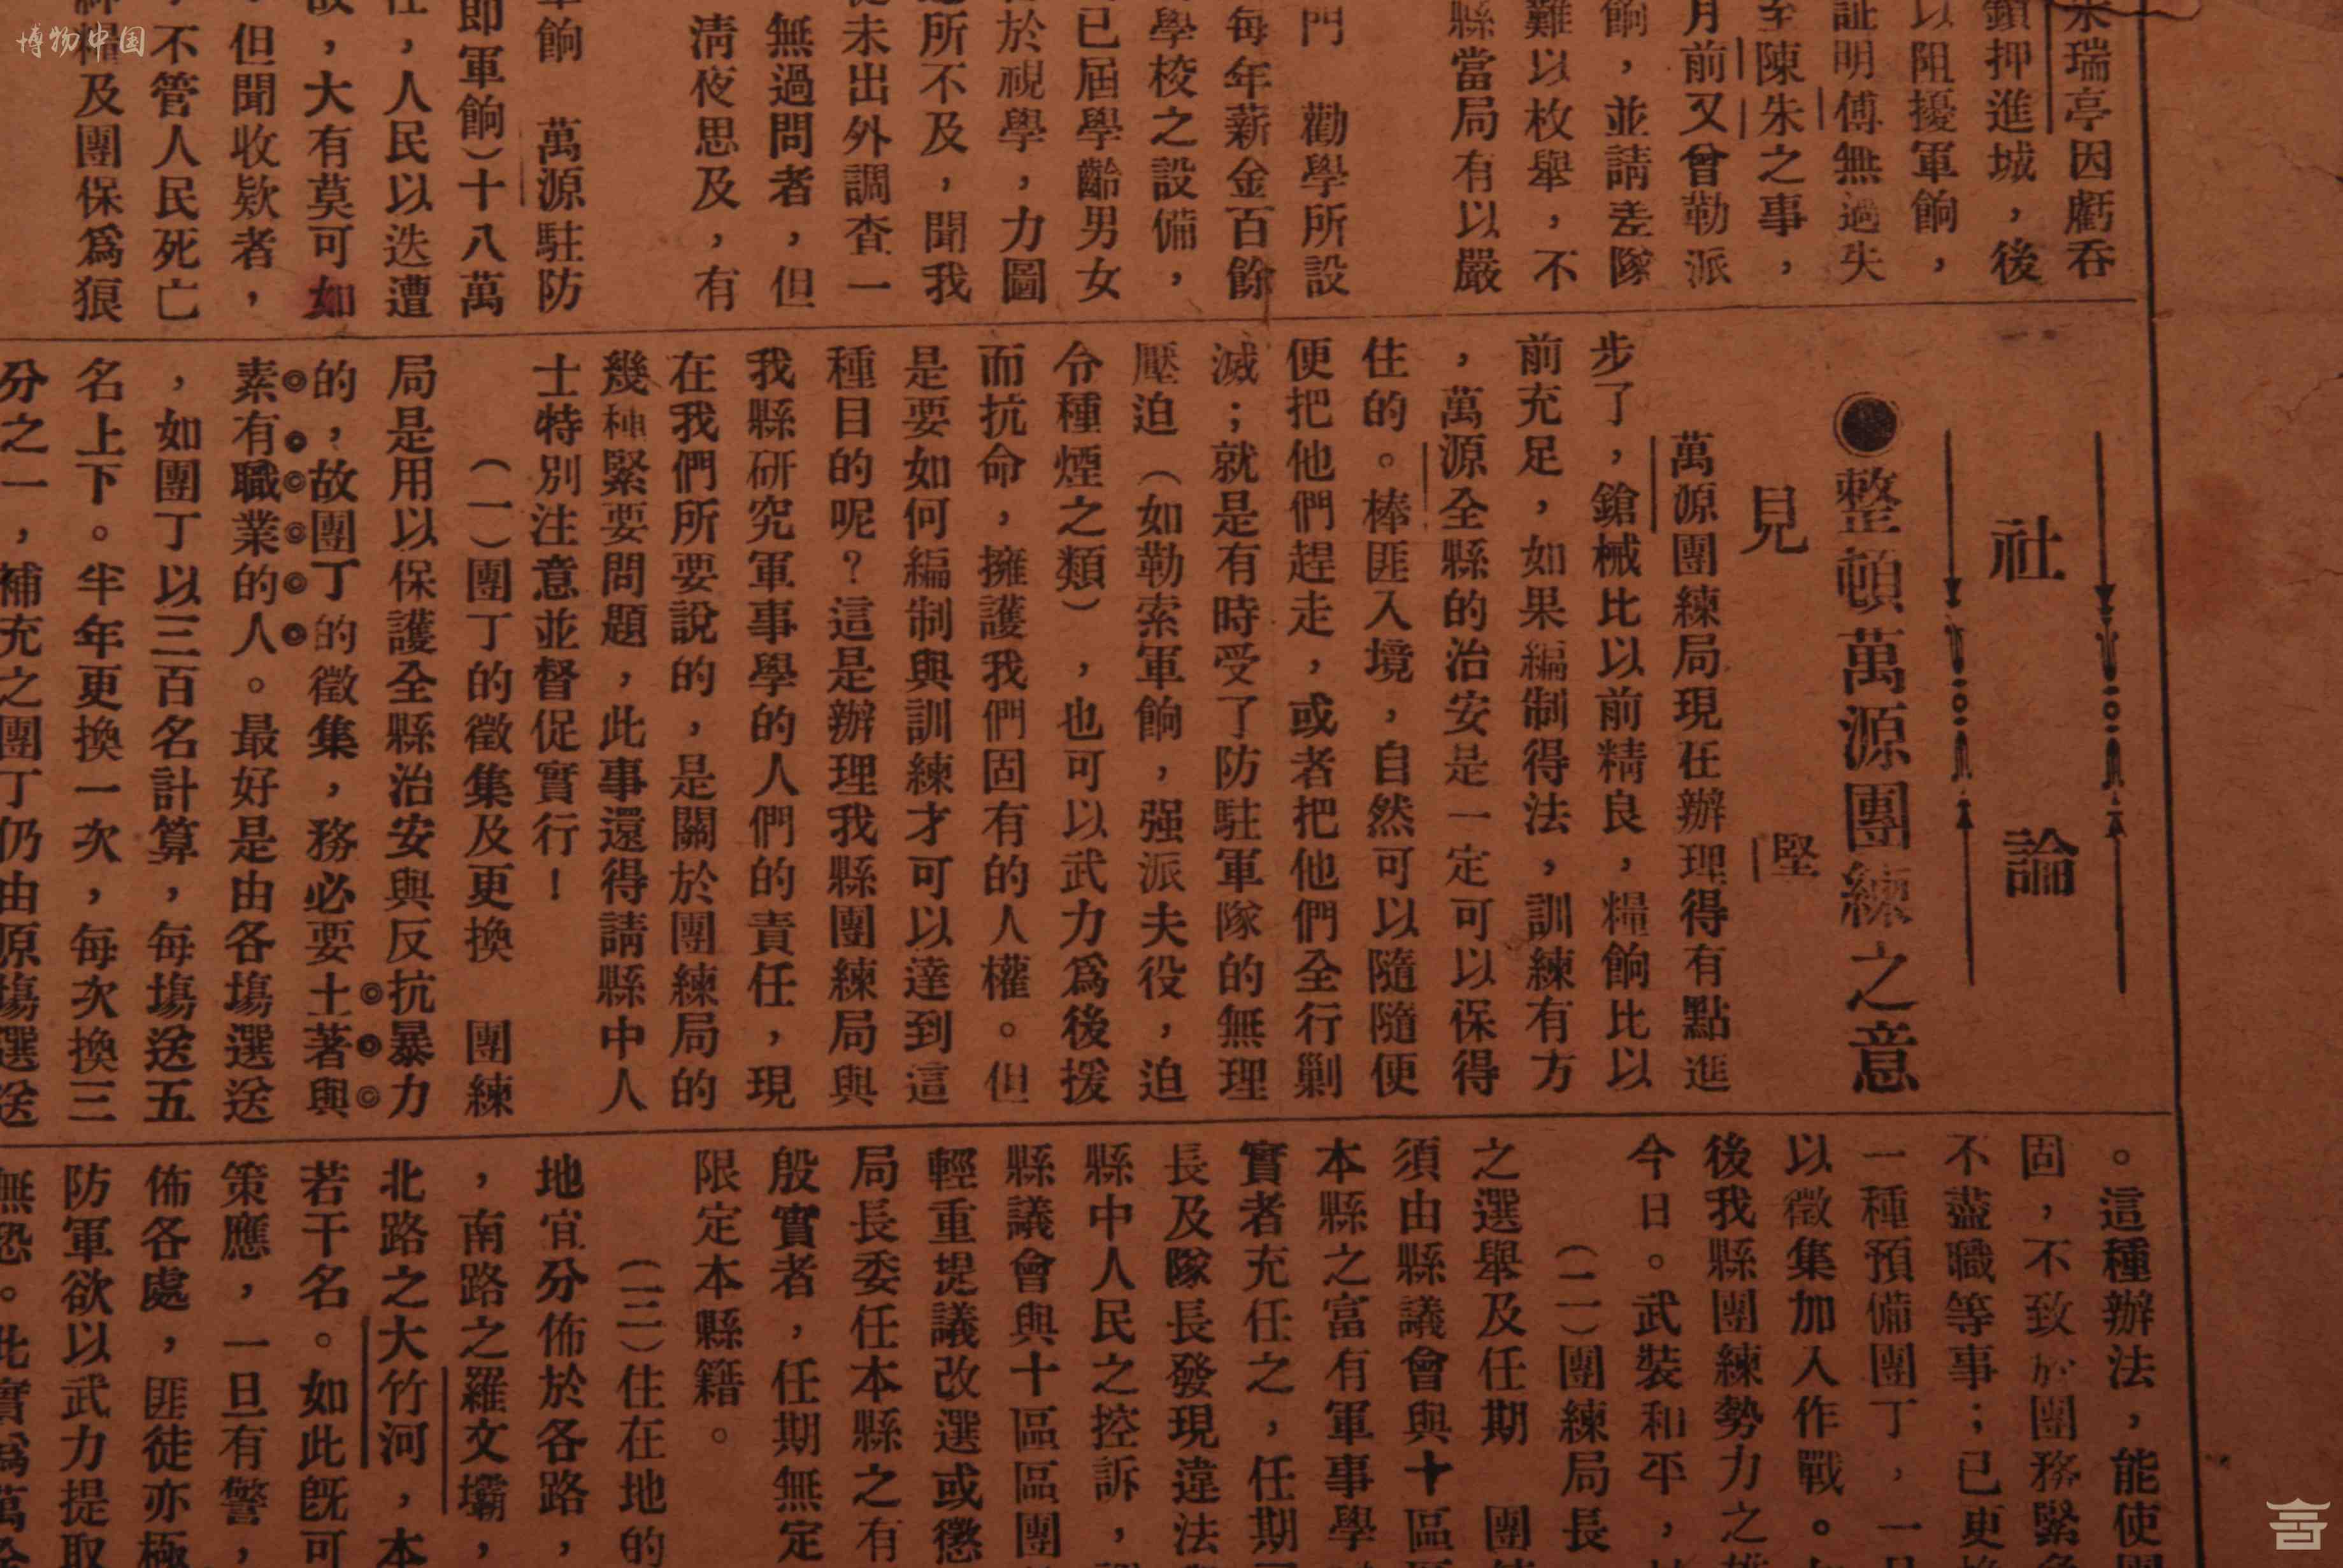 博物中国
朱瑞亭因虧吞
鎖押進城，後
以阻擾軍餉，
証明傅無過失
至陳朱之事，
月前又曾勒派
餉，並請差隊
難以枚舉，不
縣當局有以嚴
門　勸學所設
每年薪金百餘
學校之設備，
已屆學齡男女
於視學，力圖
所不及，聞我
從未出外調查一
無過問者，但
清夜思及，有
軍餉　萬源駐防
即軍餉）十八萬
，人民以迭遭
故，大有莫可如
，但聞收欵者，
，不管人民死亡
紳權及團保爲狠
社論
●整頓萬源團練之意
見　堅
萬源團練局現在辦理得有點進
步了，鎗械比以前精良，糧餉比以
前充足，如果編制得法，訓練有方
，萬源全縣的治安是一定可以保得
住的。棒匪入境，自然可以隨隨便
便把他們趕走，或者把他們全行剿
滅；就是有時受了防駐軍隊的無理
壓迫（如勒索軍餉，强派夫役，迫
令種煙之類），也可以武力爲後援
而抗命，擁護我們固有的人權。但
是要如何編制與訓練才可以達到這
種目的呢？這是辦理我縣團練局與
我縣研究軍事學的人們的責任，現
在我們所要說的，是關於團練局的
幾种緊要問題，此事還得請縣中人
士特別注意並督促實行！
（一）團丁的徵集及更換　團練
局是用以保護全縣治安與反抗暴力
的，故團丁的徵集，務必要土著與
素有職業的人。最好是由各塲選送
，如團丁以三百名計算，每塲送五
名上下。半年更換一次，每次換三
分之一，補充之團丁仍由原塲選送
。這種辦法，能使
固，不致於團務緊
不盡職等事；已更
一種預備團丁，一
以徵集加入作戰。
後我縣團練勢力之
今日。武裝和平，
（二）團練局長
之選舉及任期　團
須由縣議會與十區
本縣之富有軍事學
實者充任之，任期
長及隊長發現違法
縣中人民之控訴，
縣議會與十區區團
輕重提議改選或懲
局長委任本縣之有
殷實者，任期無定
限定本縣籍。
（三）住在地的
地宜分佈於各路，
，南路之羅文壩，
北路之大竹河，本
若干名。如此旣可
策應，一旦有警，
佈各處，匪徒亦極
防軍欲以武力提取
無恐。此實爲萬全